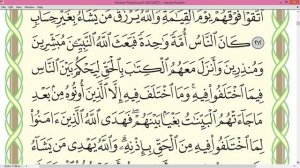 اتَّقَوْا فَوْقَهُمْ يَوْمَ الْقِيَامَةِ وَاللَّهُ يَرْزُقُ مَنْ يَشَاءُ بِغَيْرِ حِسَابٍ
٢١٢ كَانَ النَّاسُ أُمَّةً وَاحِدَةً فَبَعَثَ اللَّهُ النَّبِيِّينَ مُبَشِّرِينَ
وَمُنْذِرِينَ وَأَنْزَلَ مَعَهُمُ الْكِتَابَ بِالْحَقِّ لِيَحْكُمَ بَيْنَ النَّاسِ
فِيمَا اخْتَلَفُوا فِيهِ وَمَا اخْتَلَفَ فِيهِ إِلَّا الَّذِينَ أُوتُوهُ مِنْ بَعْدِ
مَا جَاءَتْهُمُ الْبَيِّنَاتُ بَغْيًا بَيْنَهُمْ فَهَدَى اللَّهُ الَّذِينَ آمَنُوا
لِمَا اخْتَلَفُوا فِيهِ مِنَ الْحَقِّ بِإِذْنِهِ وَاللَّهُ يَهْدِي مَنْ يَشَاءُ